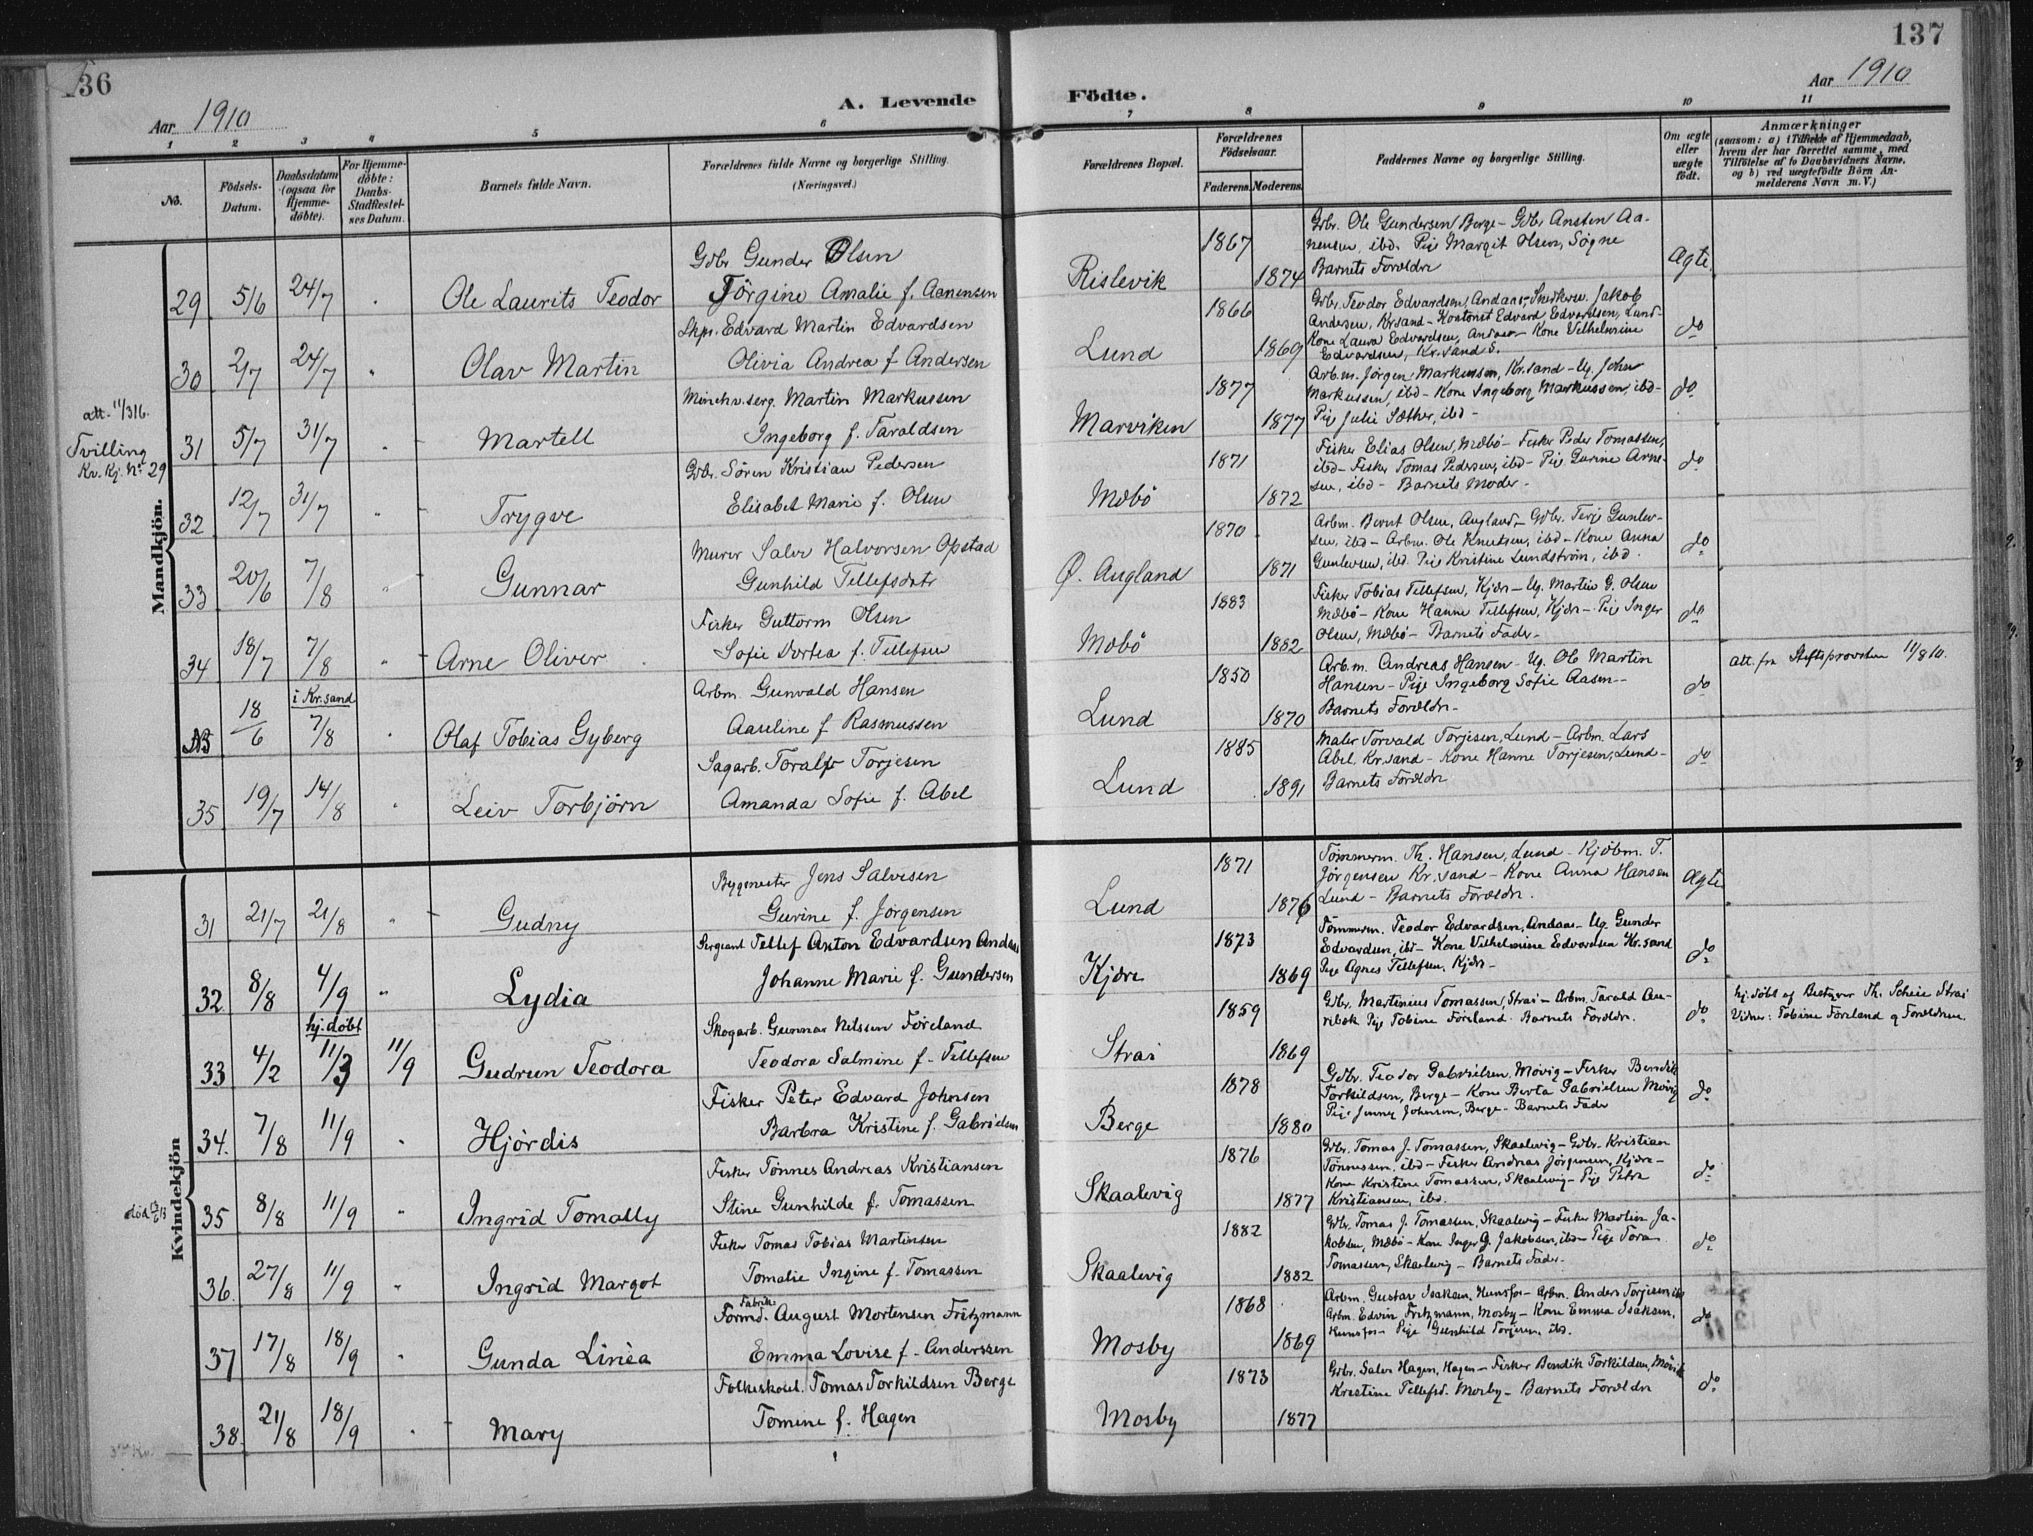 136
137
Aar 1910
A. Levende
Födte.
Aar 1910
1 2 3 4 5 6 7 8 9 10 11
No.
Födsels-Datum.
Daabsdatum (ogsaa for Hjemme-döbte).
For Hjemme-döbte: Daabs-Stadfæstel-ses Datum.
Barnets fulde Navn.
Forældrenes fulde Navne og borgerlige Stilling.
(Næringsvei.)
Forældrenes Bopæl.
Forældrenes Födselsaar.
Faderens. Moderens.
Faddernes Navne og borgerlige Stilling.
Om ægte eller uægte födt.
Anmærkninger
(saasom: a) i Tilfælde af Hjemmedaab, hvem der har forrettet samme, med Tilföielse af to Daabsvidners Navne, og b) ved uægtefödte Börn An-melderens Navn m. V.)
Mandkjön.
29 5/6 24/7 Ole Laurits Teodor
Gdbr. Gunder Olsen
Jörgine Amalie f. Aanensen
Rislevik 1867 1874
Gdbr. Ole Gundersen, Berge – Gdbr Ansten Aa-
nensen, ibd. Pige Margit Olsen, Søgne
Barnets Forældre
Ægte
30 2/7 24/7 Olav Martin
Skps. Edvard Martin Edvardsen
Olivia Andrea f. Andersen
Lund 1866 1869
Gdbr. Teodor Edvardsen, Andaas – Snedkersv. Jakob
Andersen, Krsand – Kontorist Edvard Edvardsen, Lund –
Kone Laura Edvardsen, Andaas – Kone Vilhelmine
Edvardsen, Kr.sand S.
do
att. 11/3 16.
Tvilling
Kv. Kj. No 29
31 5/7 31/7 Martell
Martin Markussen
Ingeborg f. Taraldsen
Marviken 1877 1877
Arb.m. Jörgen Markussen, Kr.sand – Ug. John
Markussen, ibd – Kone Ingeborg Markussen, ibd –
Pige Julie Sæther, ibd –
do
32 12/7 31/7 Trygve
Gdbr. Sören Kristian Pedersen
Elisabet Marie f. Olsen
Mæbö 1871 1872
Fisker Elias Olsen, Mæbö – Fisker Peder Tomassen,
ibd – Fisker Tomas Pedersen, ibd – Pige Gurine Arne-
sen, ibd – Barnets Moder –
do
33 20/6 7/8 Gunnar
Murer Salve Halvorsen Opstad
Gunhild Tellefsdatr
Ø. Augland 1870 1871
Arbm. Bernt Olsen, Augland – Gdbr. Terje Gunlev-
sen, ibd – Arbm. Ole Knutsen, ibd – Kone Anna
Gunlevsen, ibd. Pige Kristine Lundström, ibd.
do
34 18/7 7/8 Arne Oliver
Fisker Guttorm Olsen
Sofie Dortea f. Tellefsen
Mæbö 1883 1882
Fisker Tobias Tellefsen, Kjær – Ug. Martin G. Olsen
Mæbö – Kone Hanne Tellefsen, Kjær – Pige Inger
Olsen, Mæbö – Barnets Fader –
do
18/6 i Kr.sand 7/8 Olaf Tobias Gyberg
Arbm. Gunvald Hansen
Aaseline f. Rasmussen
Lund 1850 1870
Arb.m. Andreas Hansen – Ug. Ole Martin
Hansen – Pige Ingeborg Sofie Aasen –
Barnets Forældre –
do
Att. fra Stiftsprovsten 11/8 10.
35 19/7 14/8 Leiv Torbjörn
Sagarb. Toralf Torjesen
Amanda Sofie f. Abel
Lund 1885 1891
Maler Torvald Torjesen, Lund – Arbm. Lars
Abel, Kr.sand – Kone Hanne Torjesen, Lund –
Barnets Forældre
do
Kvindekjön
31 21/7 21/8 Gudny
Bygmester Jens Salvesen
Gurine f. Jørgensen
Lund 1871 1876
Tømmerm. Th. Hansen, Lund – Kjøbm. T.
Jörgensen Kr.sand – Kone Anna Hansen
Lund – Barnets Forældre.
Ægte
32 8/8 4/9 Lydia
Sergeant Tellef Anton Edvardsen Andaas
Johanne Marie f. Gundersen
Kjære 1873 1869
Tömmerm. Teodor Edvardsen, Andaas – Ug. Gunder
Edvardsen, ibd – Kone Vilhelmine Edvardsen Kr.sand
Pige Agnes Tellefsen, Kjær –
do
33 4/2 hj. døbt 11/3 11/9 Gudrun Teodora
Skogarb. Gunnar Nilssen Føreland
Teodora Salmine f. Tellefsen
Strai 1859 1869
Gdbr. Martinius Tomassen, Strai – Arbm. Tarald Au-
rebæk Pige Tobine Føreland. Barnets Forældre.
do
hj. døbt af Bestyrer Th. Scheie Strai
Vidner: Tobine Føreland og Forældrene.
34. 7/8 11/9 Hjördis
Fisker Peter Edvard Johnsen
Barbra Kristine f. Gabrielsen
Berge 1878 1880
Gdbr. Teodor Gabrielsen, Møvig – Fisker Bendik
Torkildsen, Berge – Kone Berta Gabrielsen Møvig
Pige Jenny Johnsen, Berge – Barnets Fader
do
35 8/8 11/9 Ingrid Tomally
Fisker Tönnes Andreas Kristiansen
Stine Gunhilde f. Tomassen
Skaalevig 1876 1877
Gdbr. Tomas J. Tomassen, Skaalevig – Gdbr. Kristian
Tønnessen, ibd – Fisker Andreas Jørgensen, Kjære –
Kone Kristine Tomassen, Skaalevig – Pige Petra
Kristiansen, ibd.
do
36. 27/8 11/9 Ingrid Margot
Fisker Tomas Tobias Martinsen
Tomalie Ingine f. Tomassen
Skaalevig 1882 1882
Gdbr. Tomas J. Tomassen, Skaalevig – Fisker Martin Ja-
kobsen, Mæbö – Kone Inger G. Jakobsen, ibd – Pige Tora
Tomassen, Skaalevig – Barnets Fader.
do
37 17/8 18/9 Gunda Linèa
Fabrik.
Formd. August Mortensen Fritzmann
Emma Lovise f. Anderssen
Mosby 1868 1869
Arbm. Gustav Isaksen, Hunsfos – Arbm. Anders Torjesen ibd
Arbm. Edvin Fritzmann, Mosby – Kone Emma Isaksen,
Hunsfos – Pige Gunhild Torjesen, ibd.
do
38. 21/8 18/9 Mary
Folkeskoel. Tomas Torkildsen Berge
Tomine f. Hagen
Mosby 1873 1877
Gdbr. Salve Hagen, Hagen – Fisker Bendik Torkildsen, Møvik
Kristine Tellefsd. Mosby – Barnets Forældre
do